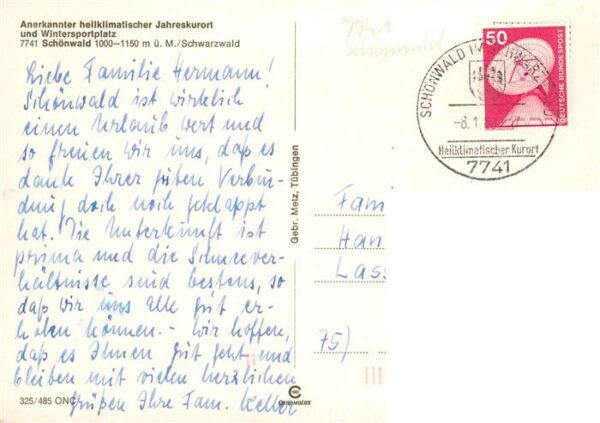 Anerkannter heilklimatischer Jahreskurort
und Wintersportplatz
7741 Schönwald 1000–1150 m ü. M./Schwarzwald
Liebe Familie Hermann!
Schönwald ist wirklich
einen Urlaub wert und
so freuen wir uns, daß es
dank Ihrer guten Verbin-
dung doch noch geklappt
hat. Die Unterkunft ist
prima und die Schneever-
hältnisse sind bestens, so
daß wir uns alle gut er-
holen können. - Wir hoffen,
daß es Ihnen gut geht und
bleiben mit vielen herzlichen
Grüßen Ihre Fam. Keller
325/485 ONC
Gebr. Metz, Tübingen
7741
Schönwald
50
DEUTSCHE BUNDESPOST
SCHÖNWALD IM SCHWARZ
-8.1.
Heilklimatischer Kurort
7741
Fam
Han
Lass
75)